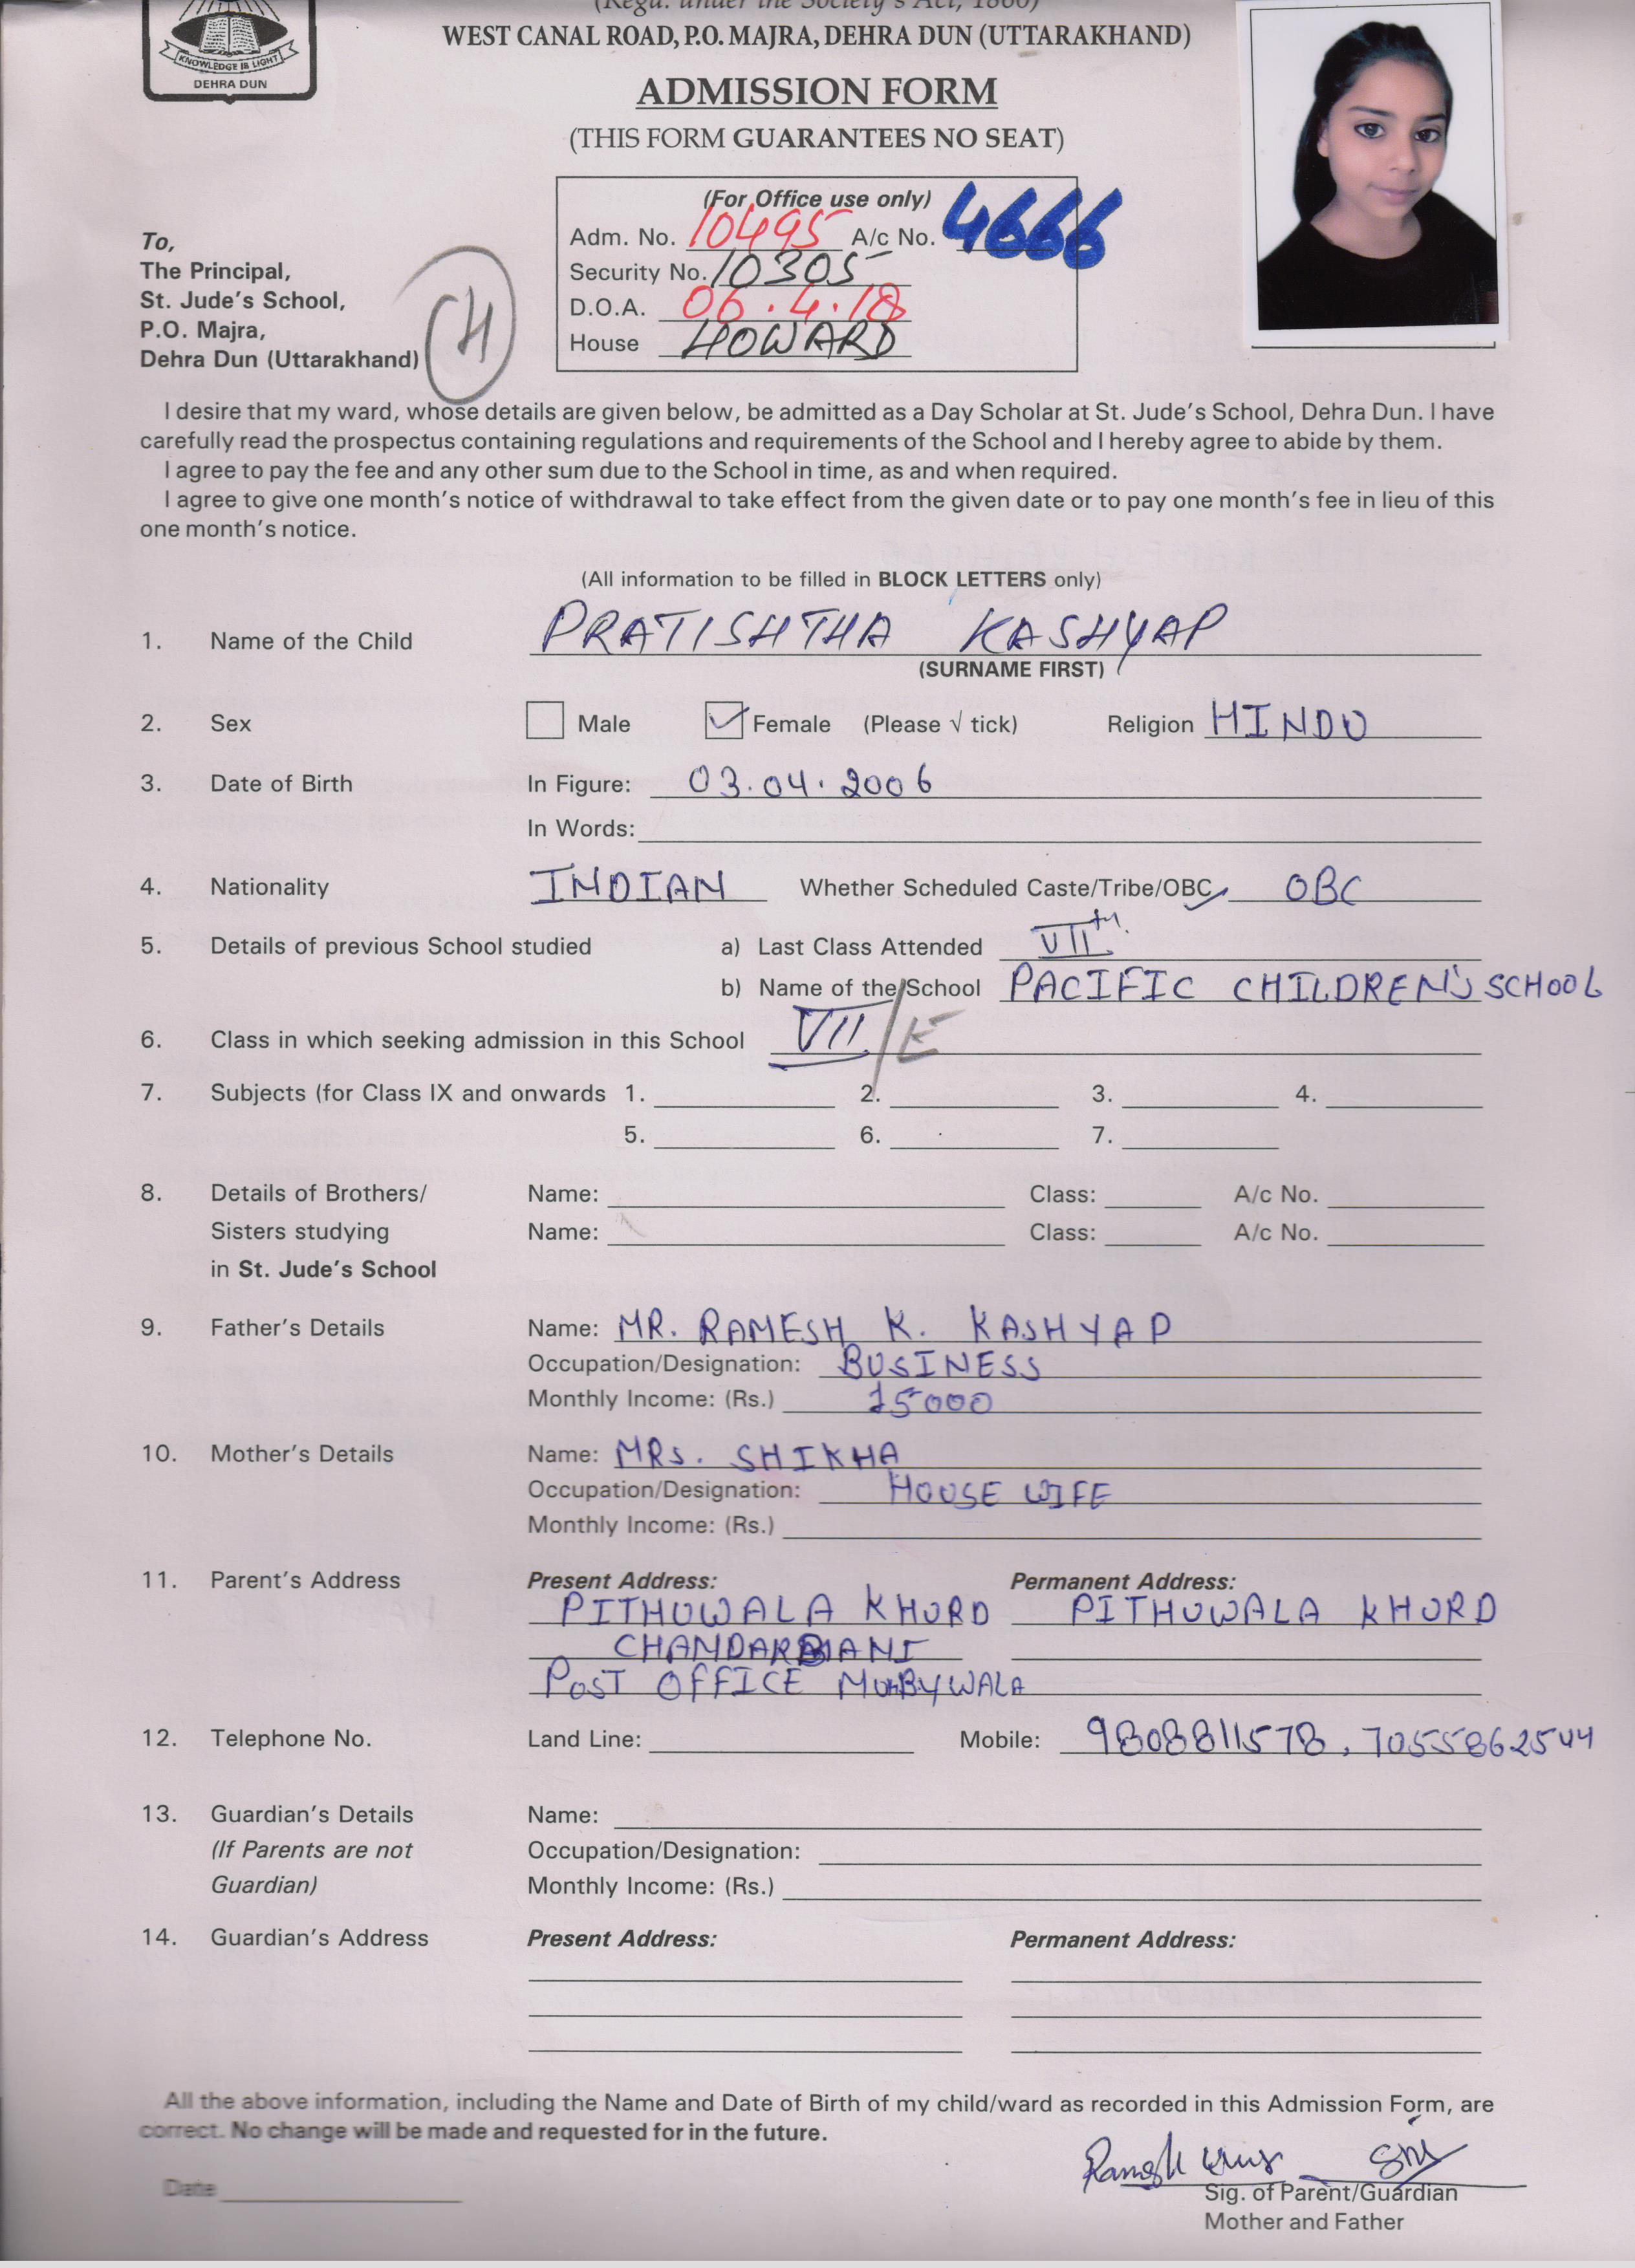 (Regd. under the Society's Act, 1860)
WEST CANAL ROAD, P.O. MAJRA, DEHRA DUN (UTTARAKHAND)
KNOWLEDGE IS LIGHT
DEHRA DUN
ADMISSION FORM
(THIS FORM GUARANTEES NO SEAT)
(For Office use only)
Adm. No. 10495 A/c No. 4666
Security No. 10305
D.O.A. 06.4.18
House HOWARD
To,
The Principal,
St. Jude's School,
P.O. Majra,
Dehra Dun (Uttarakhand)
I desire that my ward, whose details are given below, be admitted as a Day Scholar at St. Jude's School, Dehra Dun. I have
carefully read the prospectus containing regulations and requirements of the School and I hereby agree to abide by them.
I agree to pay the fee and any other sum due to the School in time, as and when required.
I agree to give one month's notice of withdrawal to take effect from the given date or to pay one month's fee in lieu of this
one month's notice.
(All information to be filled in BLOCK LETTERS only)
1. Name of the Child PRATISHTHA KASHYAP
(SURNAME FIRST)
2. Sex Male Female (Please √ tick) Religion HINDU
3. Date of Birth In Figure: 03.04.2006
In Words:
4. Nationality INDIAN Whether Scheduled Caste/Tribe/OBC OBC
5. Details of previous School studied a) Last Class Attended VIIth
b) Name of the School PACIFIC CHILDREN'S SCHOOL
6. Class in which seeking admission in this School VII/E
7. Subjects (for Class IX and onwards 1. 2. 3. 4.
5. 6. 7.
8. Details of Brothers/ Name: Class: A/c No.
Sisters studying Name: Class: A/c No.
in St. Jude's School
9. Father's Details Name: MR. RAMESH K. KASHYAP
Occupation/Designation: BUSINESS
Monthly Income: (Rs.) 15000
10. Mother's Details Name: MRS. SHIKHA
Occupation/Designation: HOUSE WIFE
Monthly Income: (Rs.)
11. Parent's Address Present Address: Permanent Address:
PITHUWALA KHURD PITHUWALA KHURD
CHANDARBANI
POST OFFICE
12. Telephone No. Land Line: Mobile: 9808811578, 7055862544
13. Guardian's Details Name:
(If Parents are not Occupation/Designation:
Guardian) Monthly Income: (Rs.)
14. Guardian's Address Present Address: Permanent Address:
All the above information, including the Name and Date of Birth of my child/ward as recorded in this Admission Form, are
correct. No change will be made and requested for in the future.
Date
Sig. of Parent/Guardian
Mother and Father